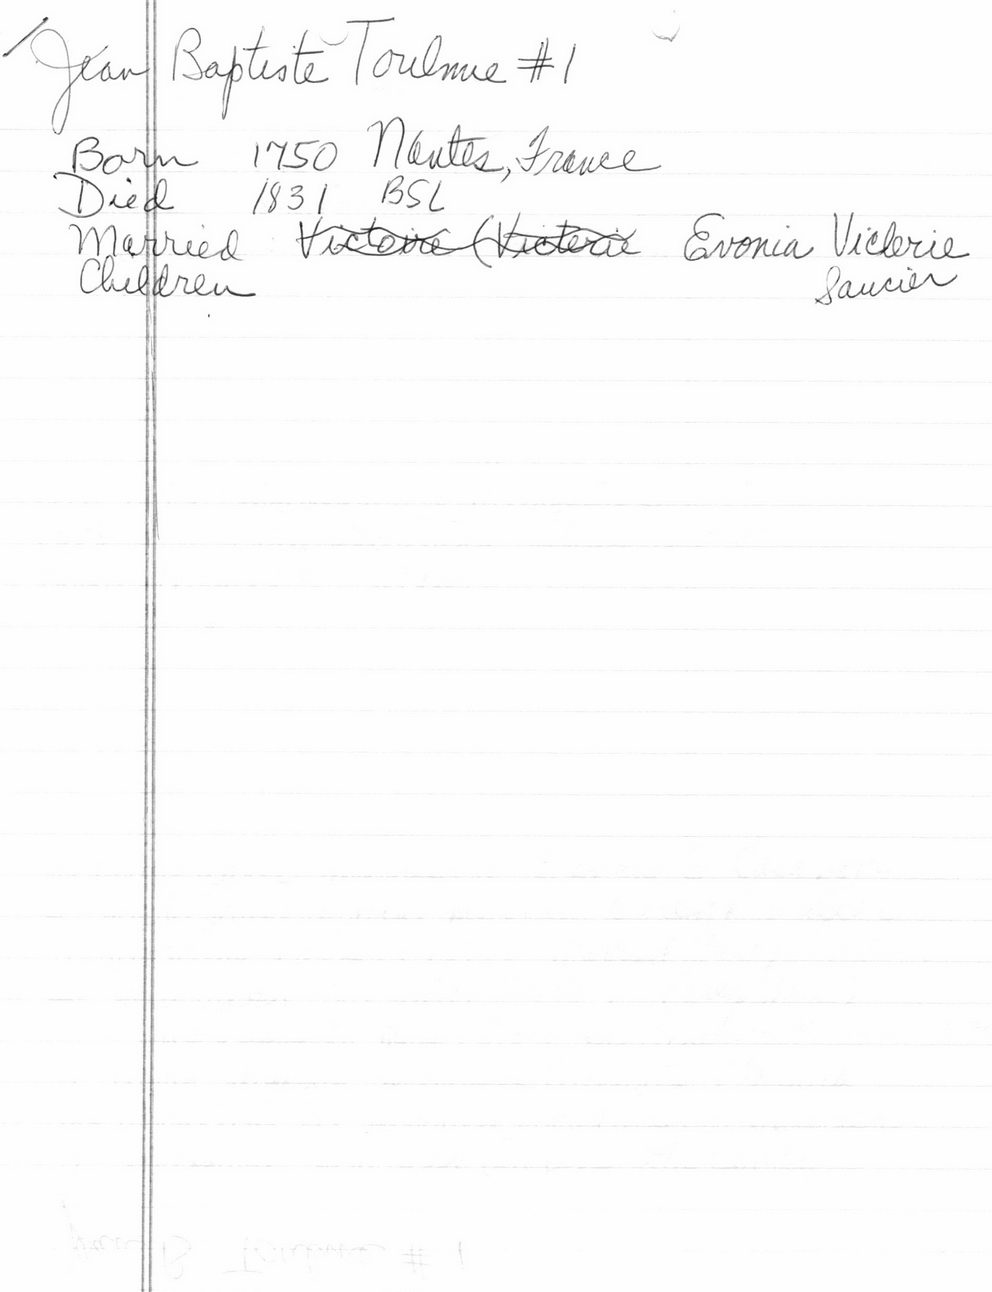 Jean Baptiste Toulme #1
Born 1750 Nantes, France
Died 1831 BSL
Married Victoire (Victerie Evonia Viclerie
Saucier
Children